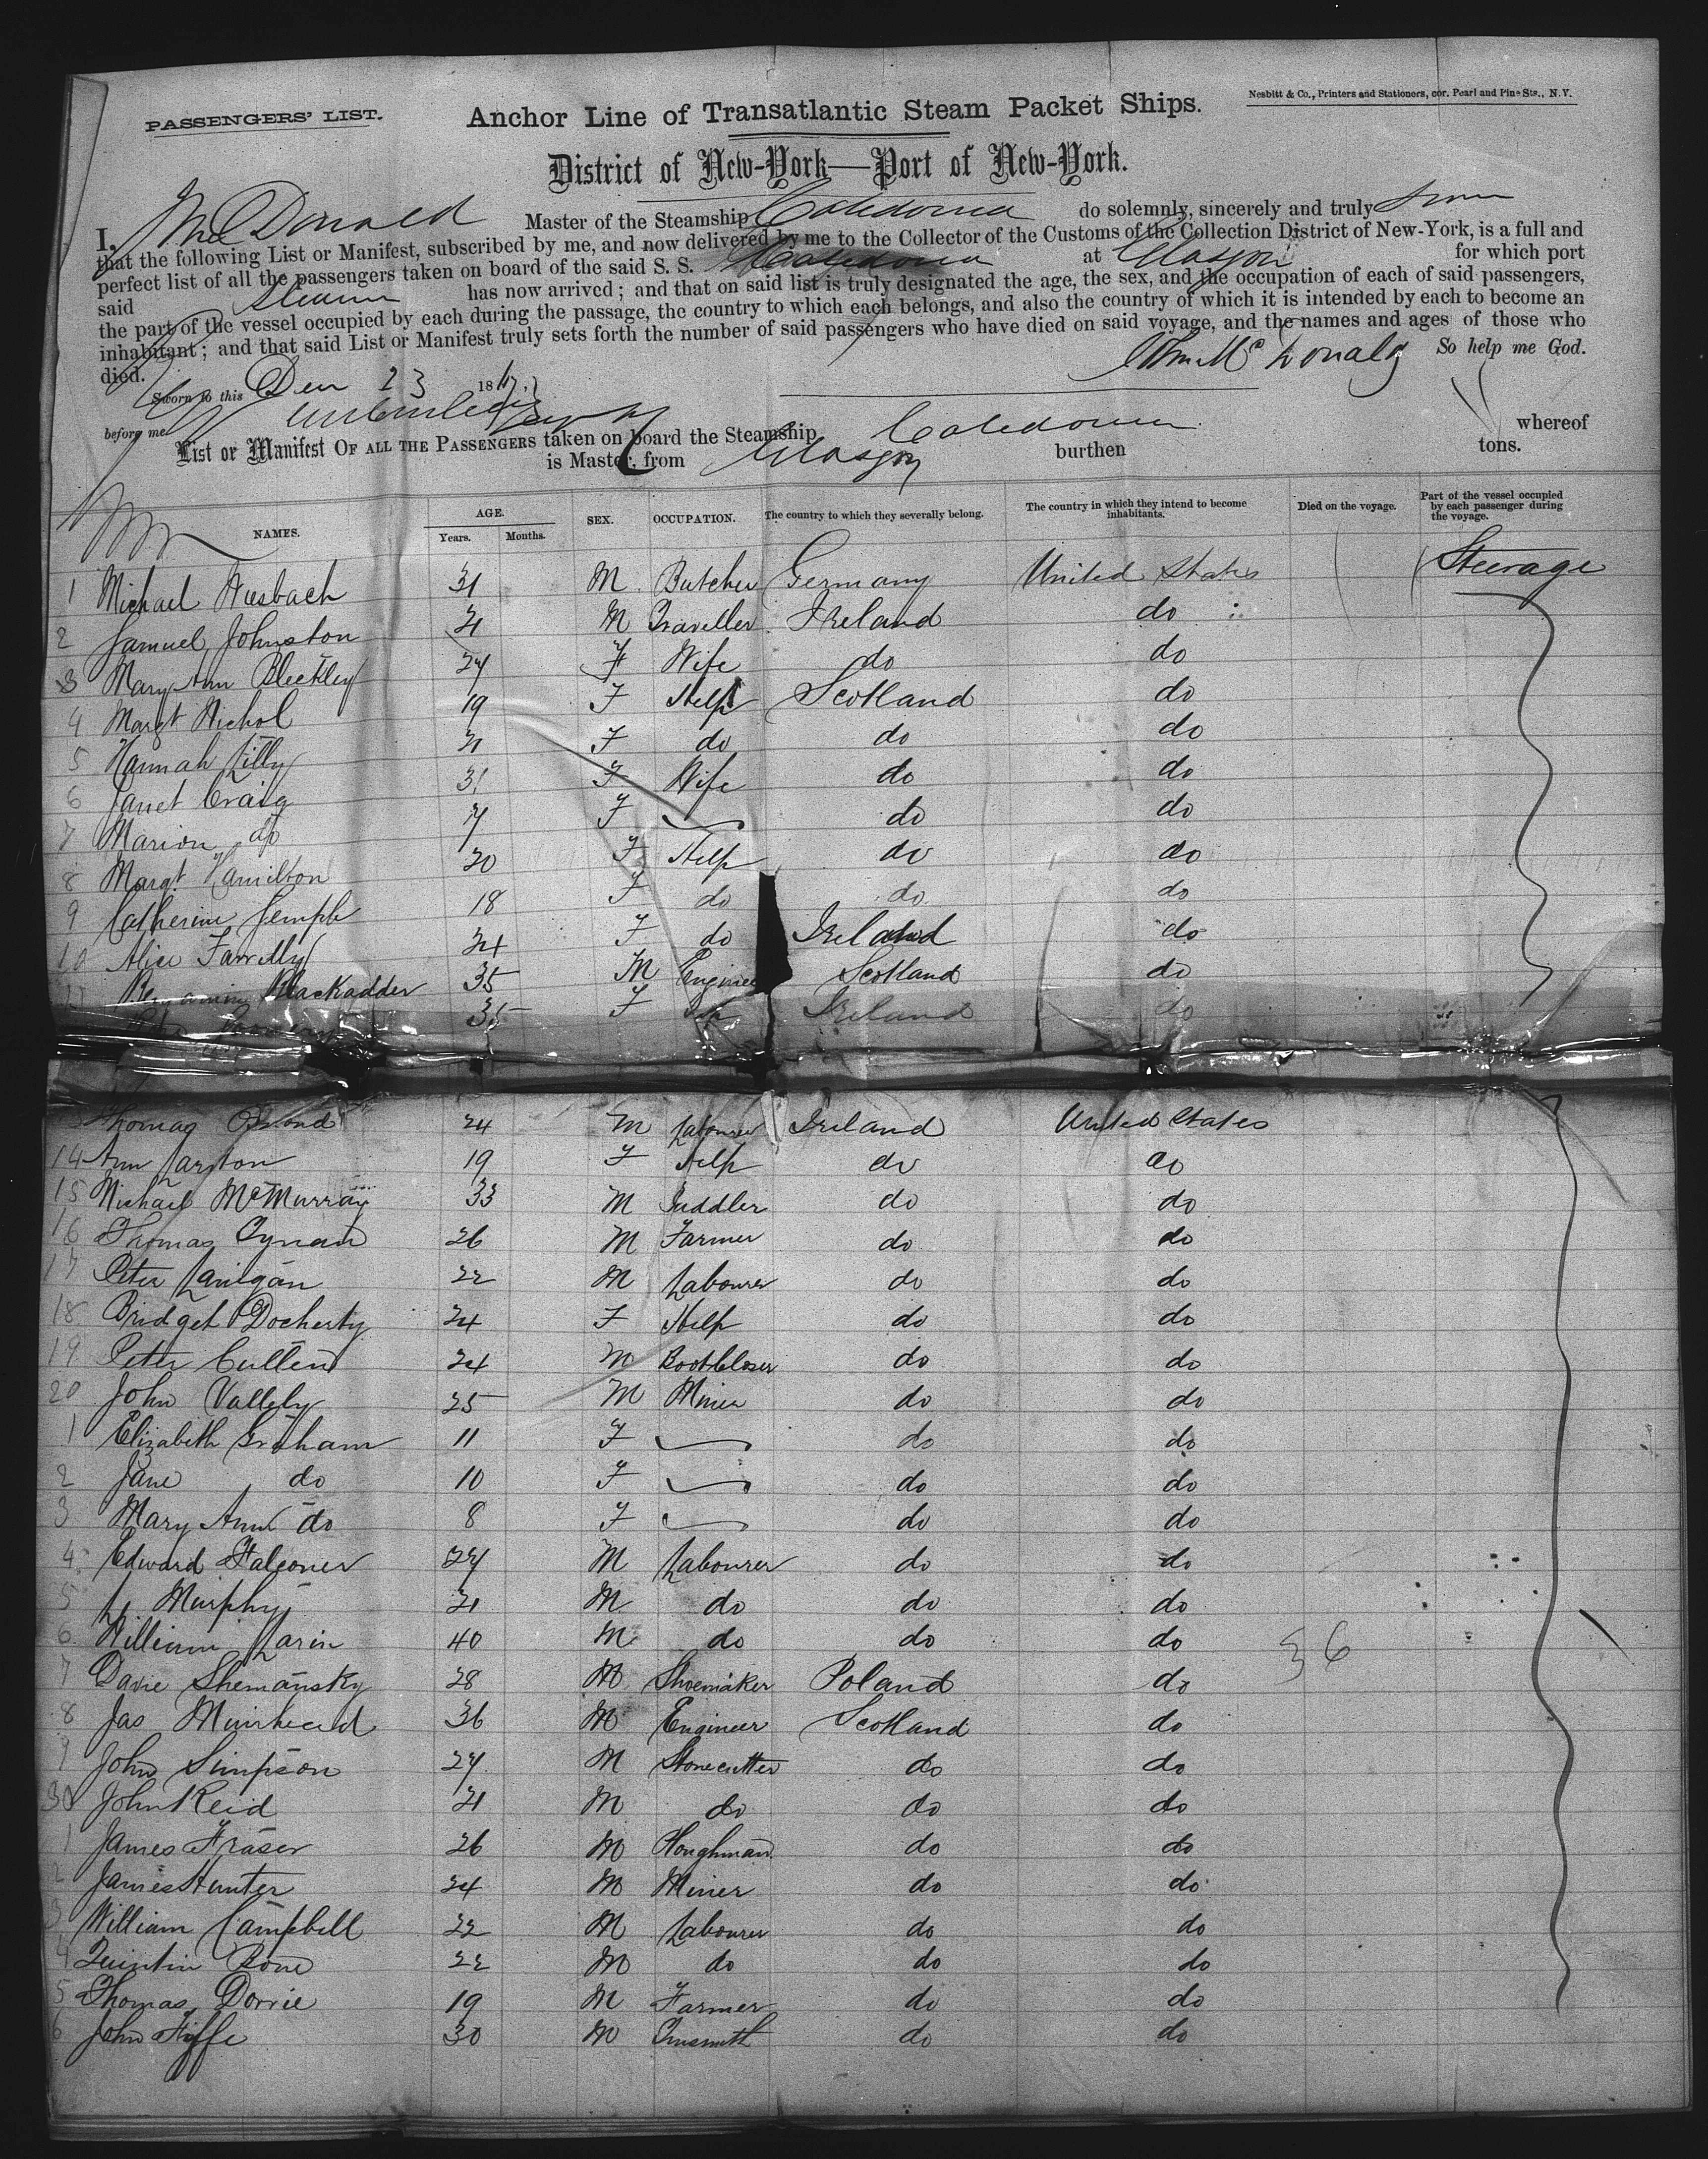 PASSENGERS' LIST.
Anchor Line of Transatlantic Steam Packet Ships.
Nesbitt & Co., Printers and Stationers, cor. Pearl and Pine Sts., N.Y.
District of New-York—Port of New-York.
I, McDonald Master of the Steamship Caledonia do solemnly, sincerely and truly swear
that the following List or Manifest, subscribed by me, and now delivered by me to the Collector of the Customs of the Collection District of New-York, is a full and
perfect list of all the passengers taken on board of the said S. S. Caledonia at Glasgow for which port
said Steamer has now arrived; and that on said list is truly designated the age, the sex, and the occupation of each of said passengers,
the part of the vessel occupied by each during the passage, the country to which each belongs, and also the country of which it is intended by each to become an
inhabitant; and that said List or Manifest truly sets forth the number of said passengers who have died on said voyage, and the names and ages of those who
died. John McDonald So help me God.
Sworn to this 23 18
before me
List or Manifest OF ALL THE PASSENGERS taken on board the Steamship Caledonia whereof
is Master, from Glasgow burthen tons.
NAMES. AGE. Years. Months. SEX. OCCUPATION. The country to which they severally belong. The country in which they intend to become inhabitants. Died on the voyage. Part of the vessel occupied by each passenger during the voyage.
1 Michael 31 M Butcher Germany United States Steerage
2 Samuel Johnston 21 M Traveller Ireland do
3 Mary Ann Bleckley 27 F Wife do do
4 Margt Nichol 19 F Help Scotland do
5 Hannah Lilly 21 F do do do
6 Janet Craig 31 F Wife do do
7 Marion do 7 F do do
8 Margt. Hamilton 20 F Help do do
9 Catherine Semple 18 F do do do
10 Alice Farrelly 24 F do Ireland do
11 Benjamin Blackadder 35 M Engineer Scotland do
35 F Ireland do
3 Thomas 24 M Labourer Ireland United States
14 Ann 19 F Help do do
15 Michael McMurray 33 M do do
16 Thomas Cynan 26 M Farmer do do
17 Peter Lanigan 22 M Labourer do do
18 Bridget Docherty 24 F Help do do
19 Peter Cullen 24 M Bootcloser do do
20 John Vallely 25 M Miner do do
1 Elizabeth Graham 11 F do do
2 Jane do 10 F do do
3 Mary Ann do 8 F do do
4 Edward Falconer 27 M Labourer do do
5 L Murphy 21 M do do do
6 William Larin 40 M do do do 36
7 Davie Shemansky 28 M Shoemaker Poland do
8 Jas Muirhead 36 M Engineer Scotland do
9 John Simpson 27 M Stonecutter do do
30 John Reid 21 M do do do
1 James Fraser 26 M Ploughman do do
2 James Hunter 24 M Miner do do
3 William Campbell 22 M Labourer do do
4 Quintin Bone 22 M do do do
5 Thomas Dorrie 19 M Farmer do do
6 John Fyffe 30 M Tinsmith do do